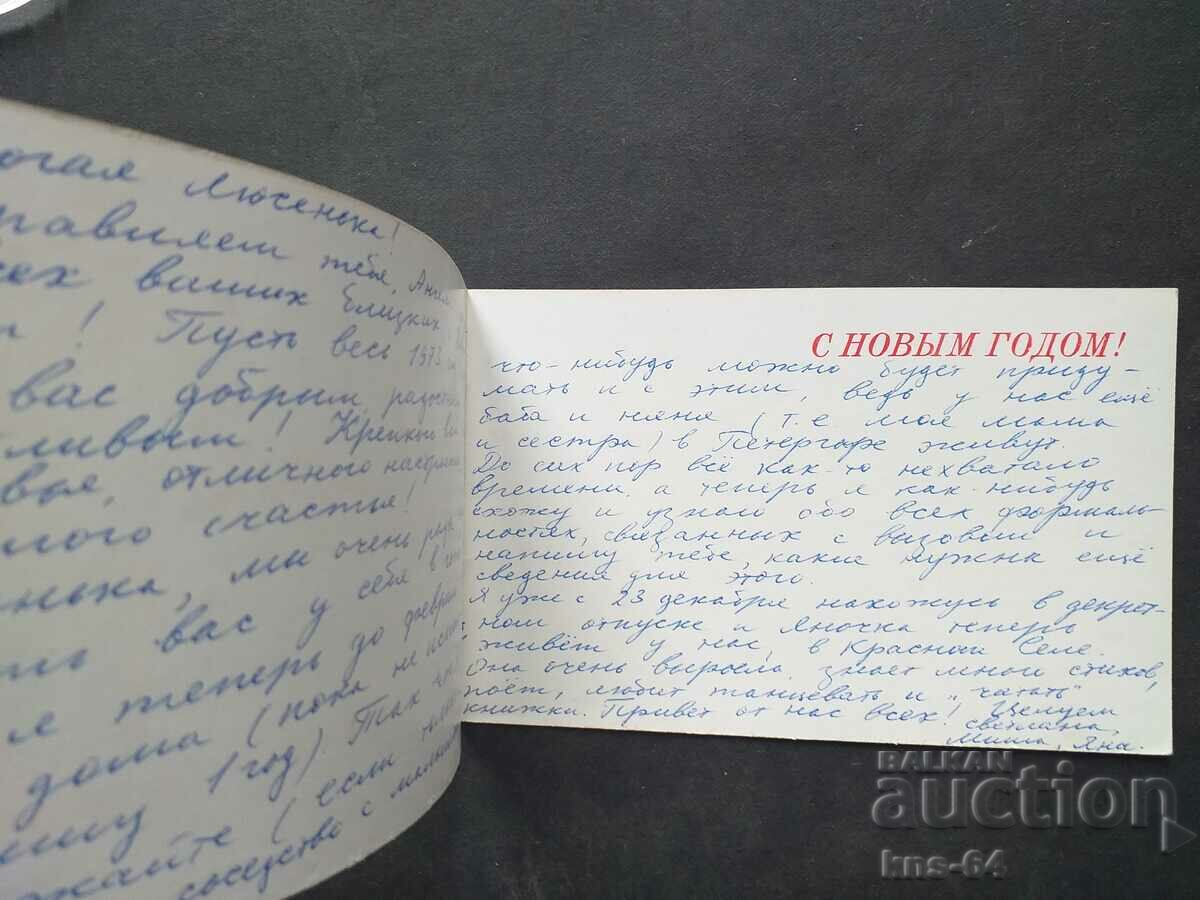 огая Люсенька!
равляем тебя, Ангел
сех ваших близких!
! Пусть весь 1973
вас добрым, радост
ливым! Крепкий
вья, отличного настроени
ного счастья!
нька, мы очень рады
вас у себя в
я теперь до феврал
дома (пока не испол
1 год) Так
жайте (если
соседство с малыш
С НОВЫМ ГОДОМ!
что-нибудь можно будет приду-
мать и с этим, ведь у нас ещё
баба и няня (т.е моя мама
и сестра) в Петергофе живут.
До сих пор всё как-то нехватало
времени, а теперь я как-нибудь
схожу и узнаю обо всех формаль-
ностях, связанных с вызовом и
напишу тебе, какие нужны ещё
сведения для этого.
Я уже с 23 декабря нахожусь в декрет-
ном отпуске и Яночка теперь
живёт у нас, в Красном Селе.
Она очень выросла, знает много стихов,
поёт, любит танцевать и „читать"
книжки. Привет от нас всех! Целуем
Светлана,
Миша, Яна.
BALKAN
auction
kns-64